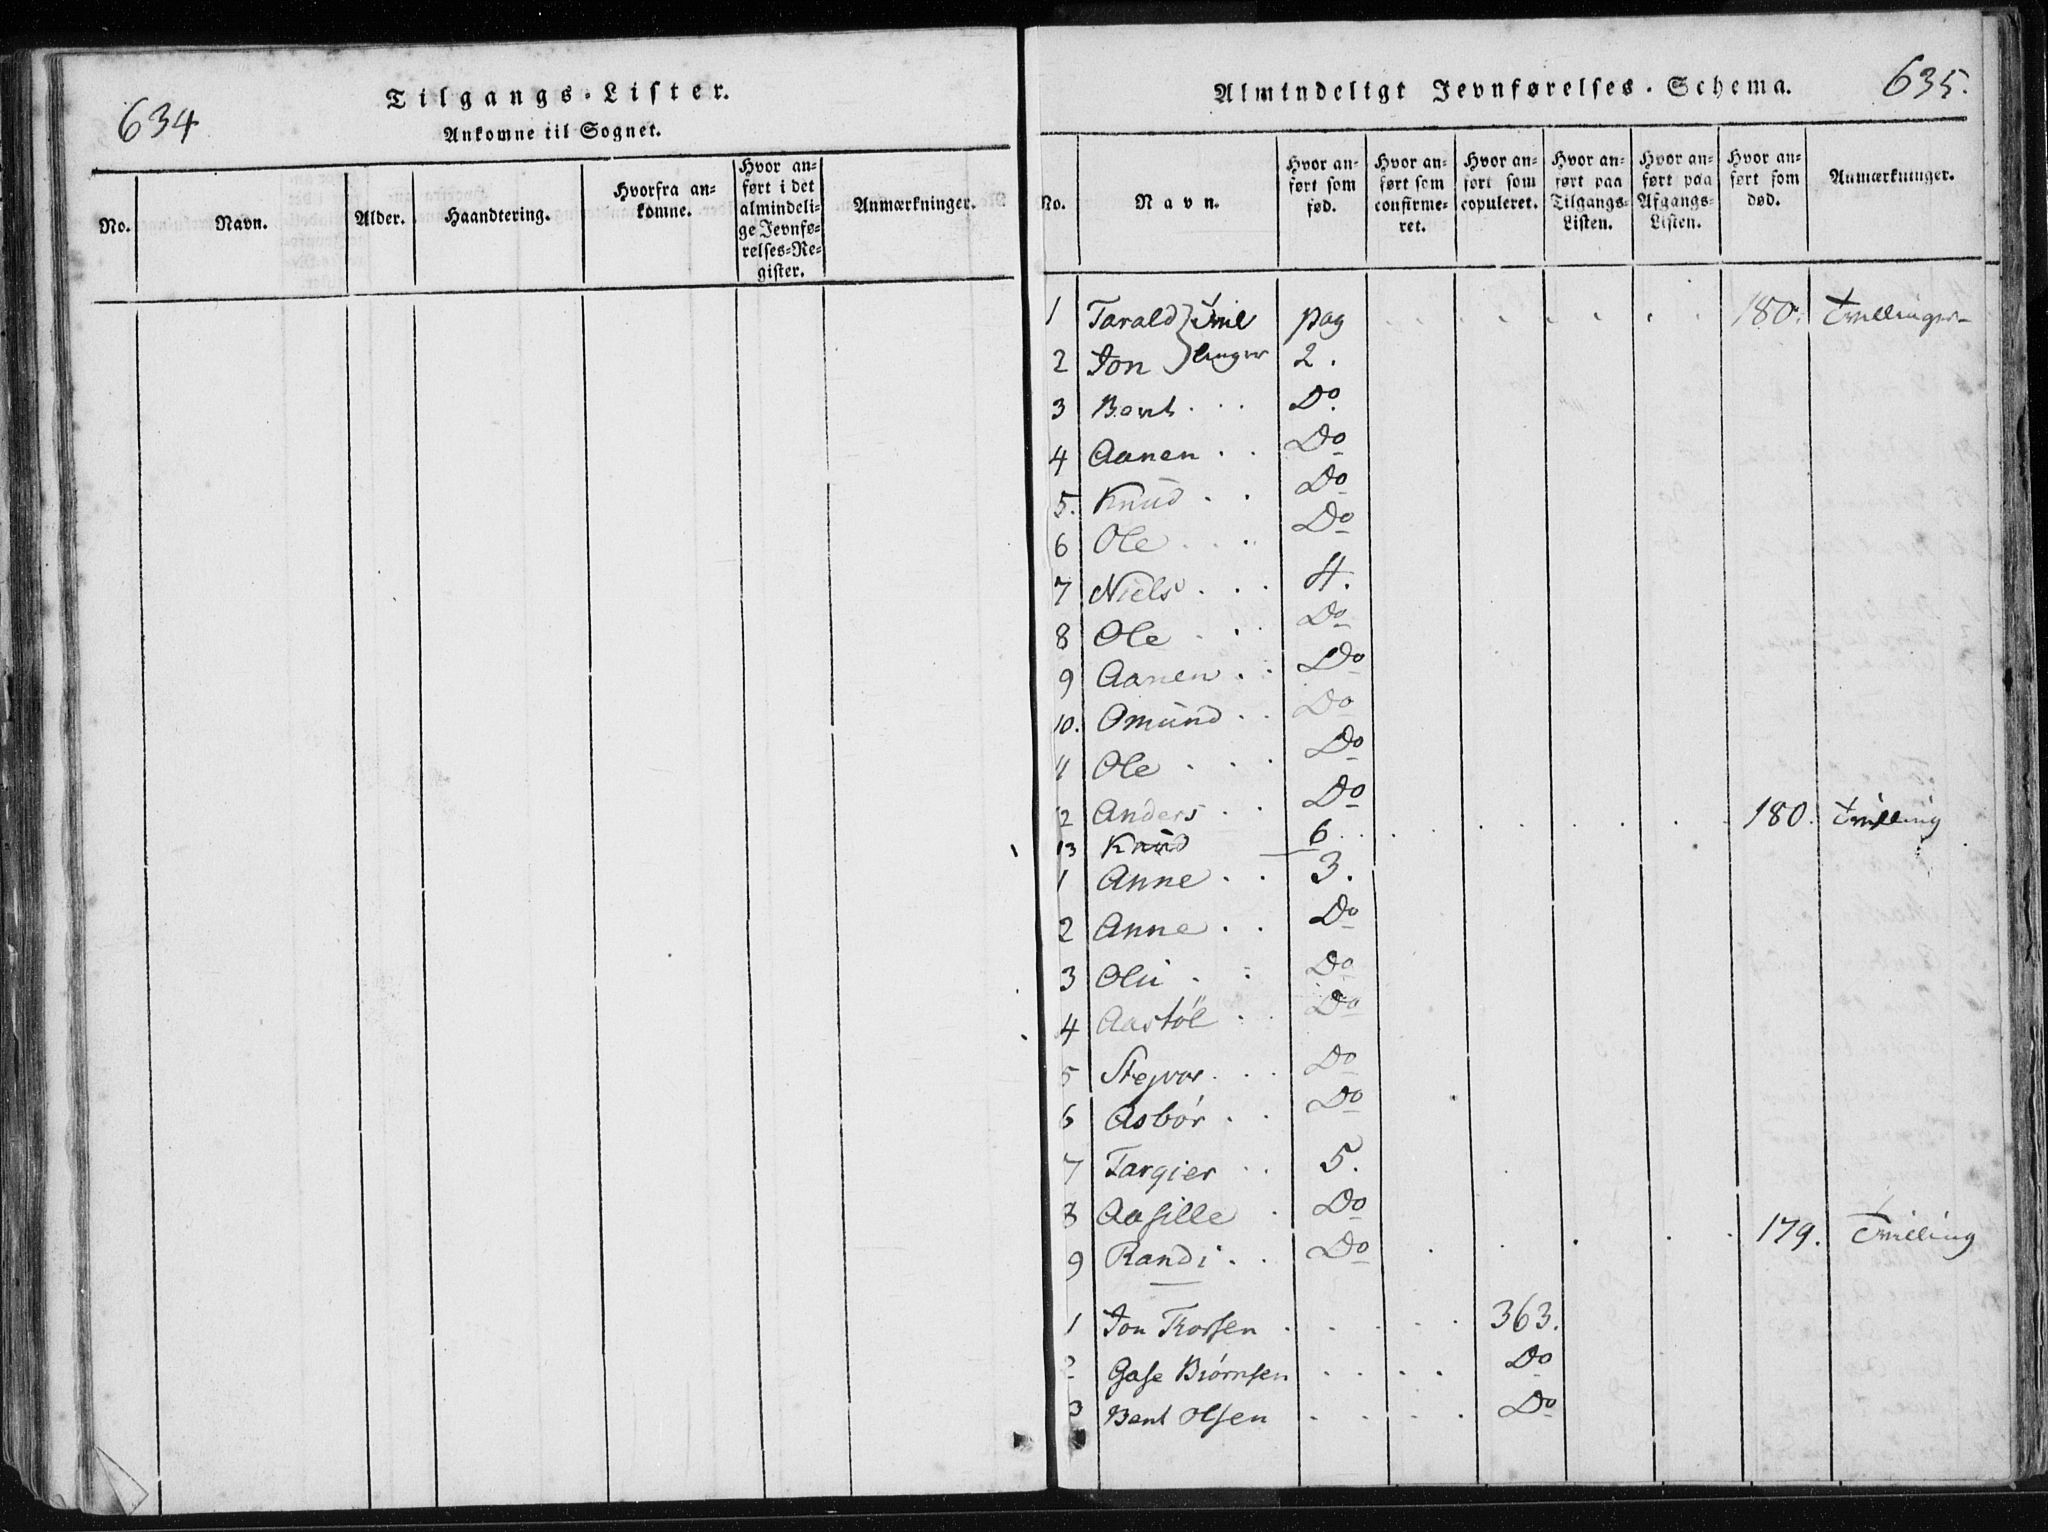 634
Tilgangs-Lister.
Ankomne til Sognet.
No. Navn. Alder. Haandtering. Hvorfra ankomne. Hvor anført i det almindelige Jevnførelses-Register. Anmærkninger.
Almindeligt Jevnførelses-Schema. 635.
No. Navn. Hvor anført som fød. Hvor anført som confirmeret. Hvor anført som copuleret. Hvor anført paa Tilgangs-Listen. Hvor anført paa Afgangs-Listen. Hvor anført som død. Anmærkninger.
1 Tarald } Tvil pag 180. Tvillinger
2 Jon } linger 2.
3 Bent Do
4 Aanen Do
5. Knud Do
6 Ole Do
7 Niels 4.
8 Ole Do
9 Aanen Do
10. Omund Do
11 Ole Do
12 Anders Do
13 Knud 6 180. Tvilling
1 Anne 3.
2 Anne Do
3 Oli Do
4 Aastöl Do
5 Do
6 Asbør Do
7 Targier 5.
8 Aasille Do
9 Randi Do 179. Tvilling
1 Jon Torsen 363.
2 Gase Biørnsen Do
3 Bent Olsen Do